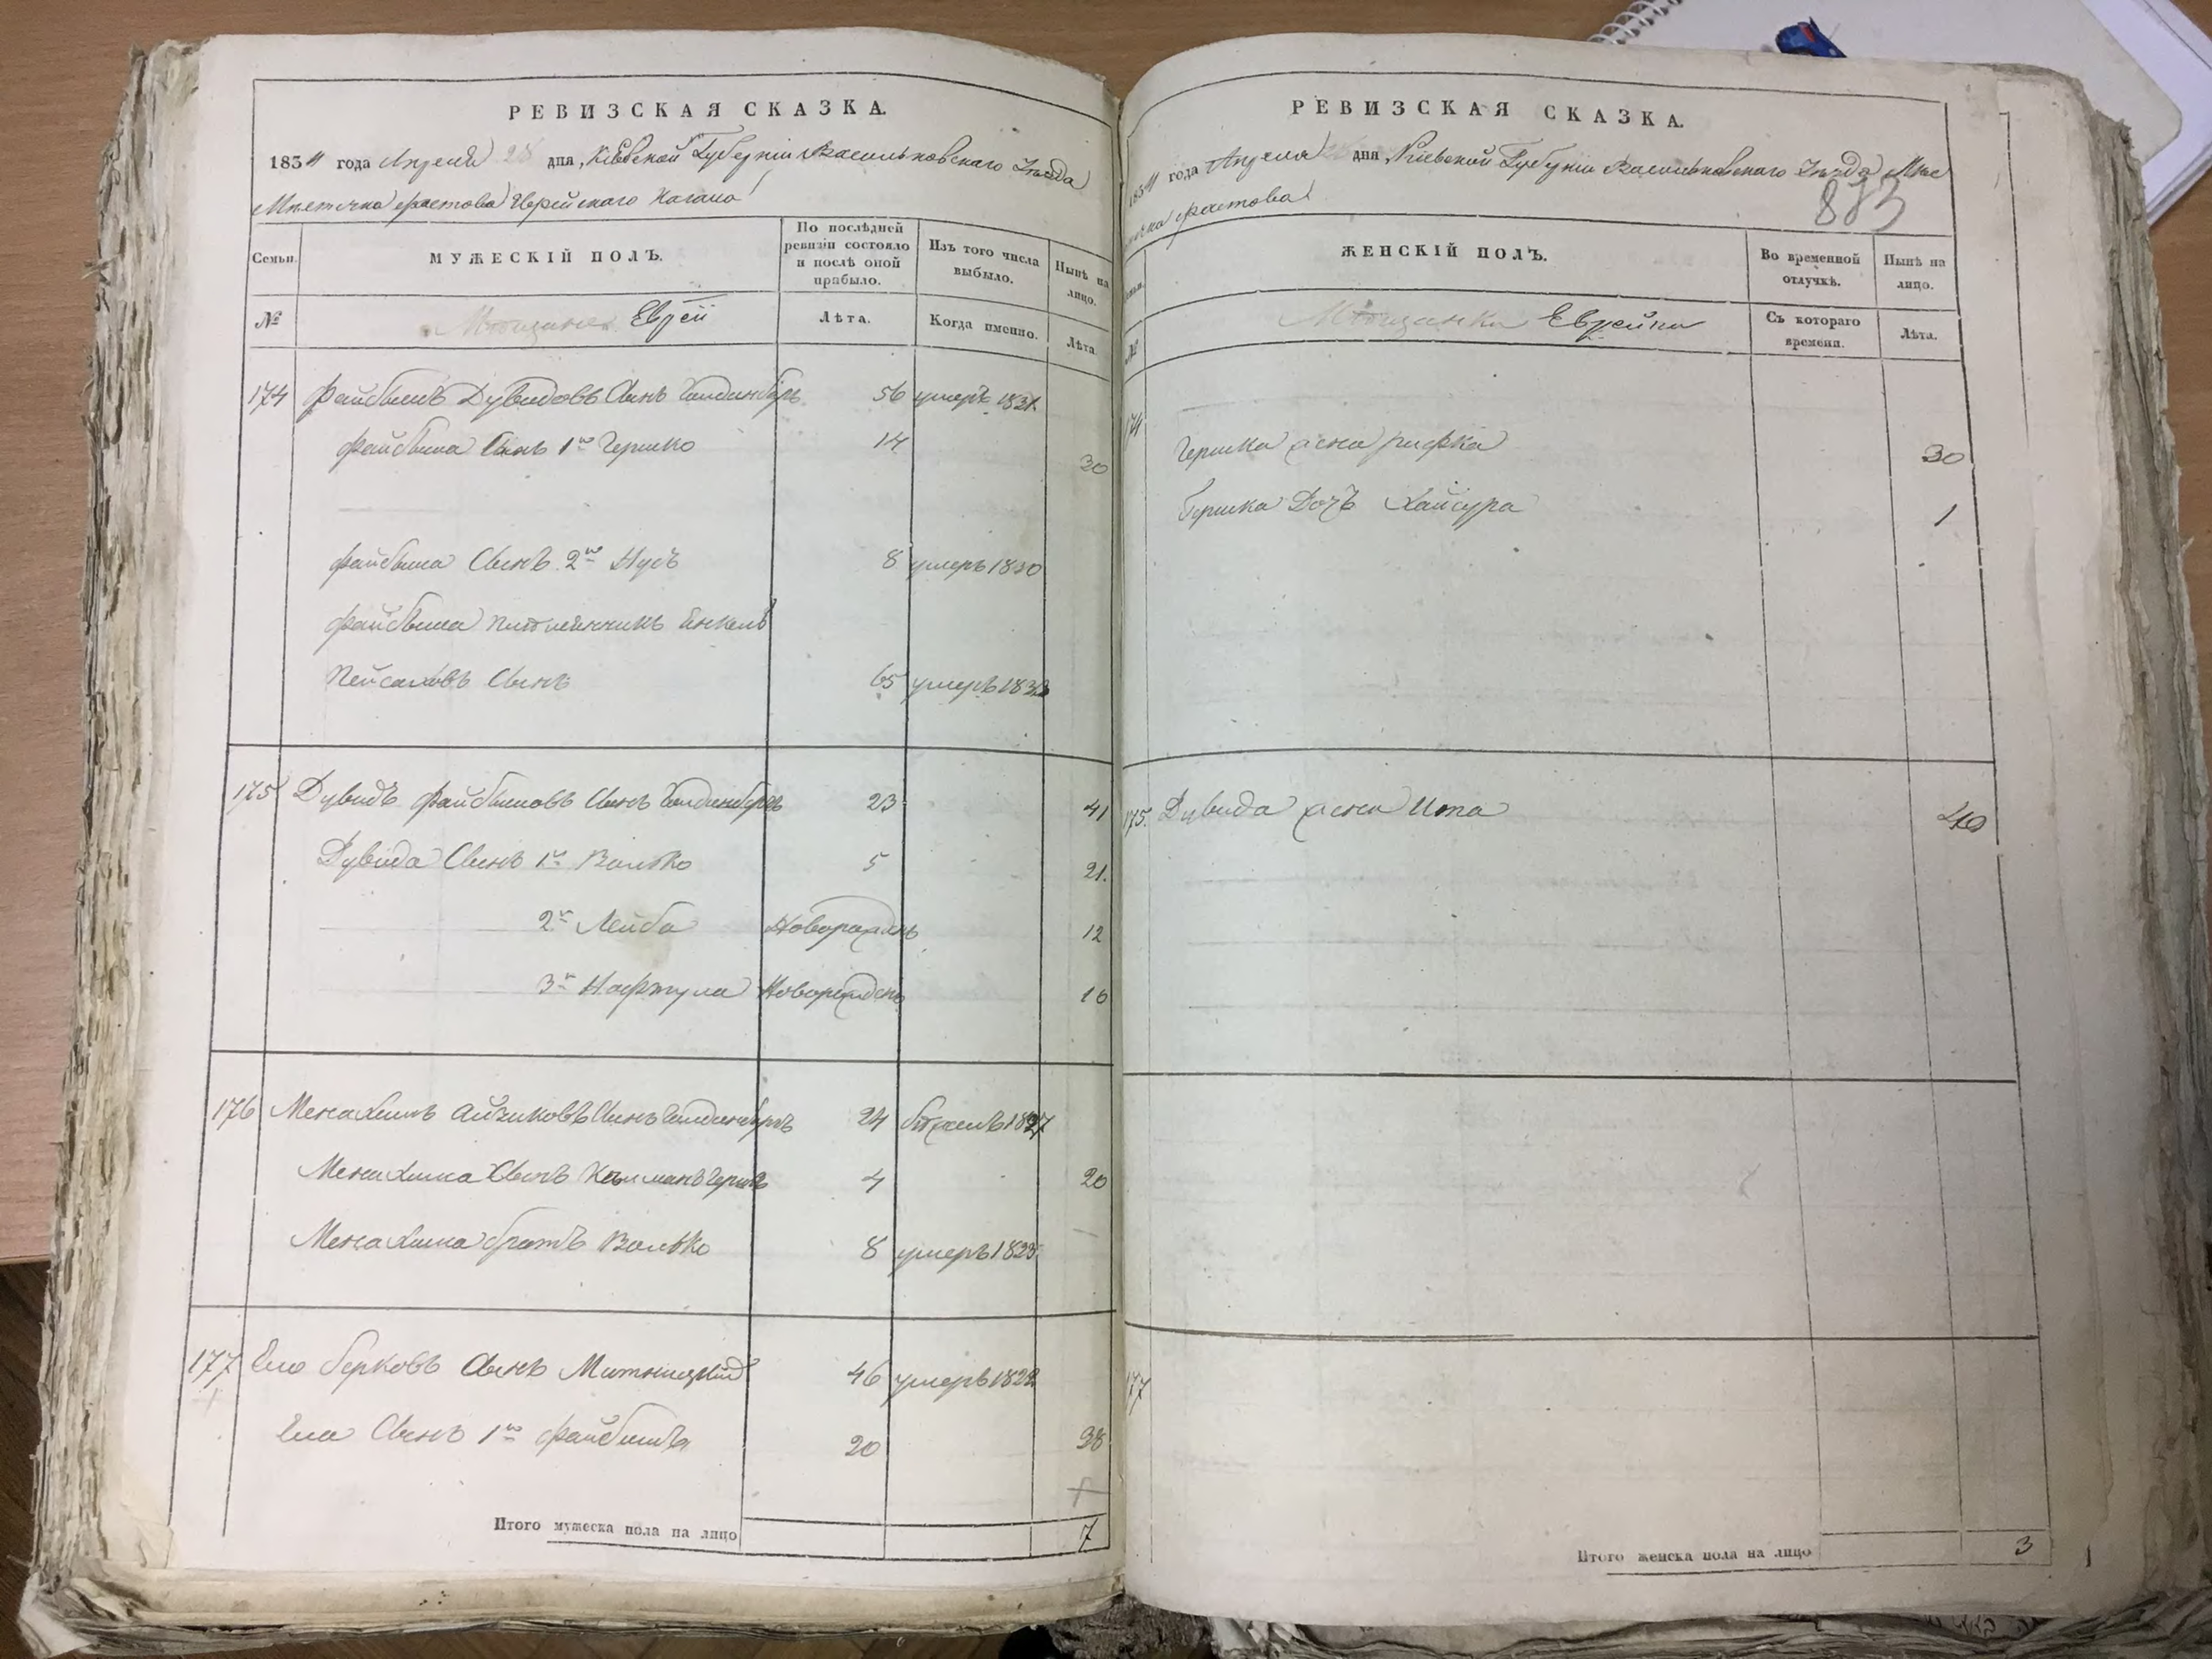 РЕВИЗСКАЯ СКАЗКА.
1834 года Апреля 28 дня, Кіевской Губерніи Васильковскаго Уезда
Местечка Фастова Еврейскаго Кагала
Семьи.
МУЖЕСКІЙ ПОЛЪ.
По послѣдней ревизіи состояло и послѣ оной прибыло.
Изъ того числа выбыло.
Нынѣ на лицо.
№
Мѣщане Еврей
Лѣта.
Когда именно.
Лѣта.
174 Файбишъ Дувидовъ Сынъ Гольденберъ 56 умеръ 1831.
Файбиша Сынъ 1й Гершко 14 30
Файбиша Сынъ 2й Нусъ 8 умеръ 1830
Файбиша племянникъ Янкель
Пейсаховъ Сынъ 65 умеръ 1833
175 Дувидъ Файбишовъ Сынъ Гольденберъ 23 41
Дувида Сынъ 1й Волько 5 21.
2й Лейба Новорожденъ 12
3й Нафтула Новорожденъ 10
176 Менахимъ Айзиковъ Сынъ Гольденберъ 24 бежалъ 1827
Менахима Сынъ Кельманъ Гершъ 4 20
Менахима братъ Волько 8 умеръ 1825
177 Ело Берковъ Сынъ Митницкий 46 умеръ 1822
Еля Сынъ 1й Файбишъ 20 38
Итого мужеска пола на лицо 7
РЕВИЗСКАЯ СКАЗКА.
1834 года Апреля дня, Кіевской Губерніи Васильковскаго Уезда Мес
течка Фастова
883
Семьи.
ЖЕНСКІЙ ПОЛЪ.
Во временной отлучкѣ.
Нынѣ на лицо.
№
Мѣщанки Еврейки
Съ котораго времени.
Лѣта.
174 Гершка жена Рифка 30
Гершка Дочъ Хайсура 1
175. Дувида жена Ита 40
177
Итого женска пола на лицо 3